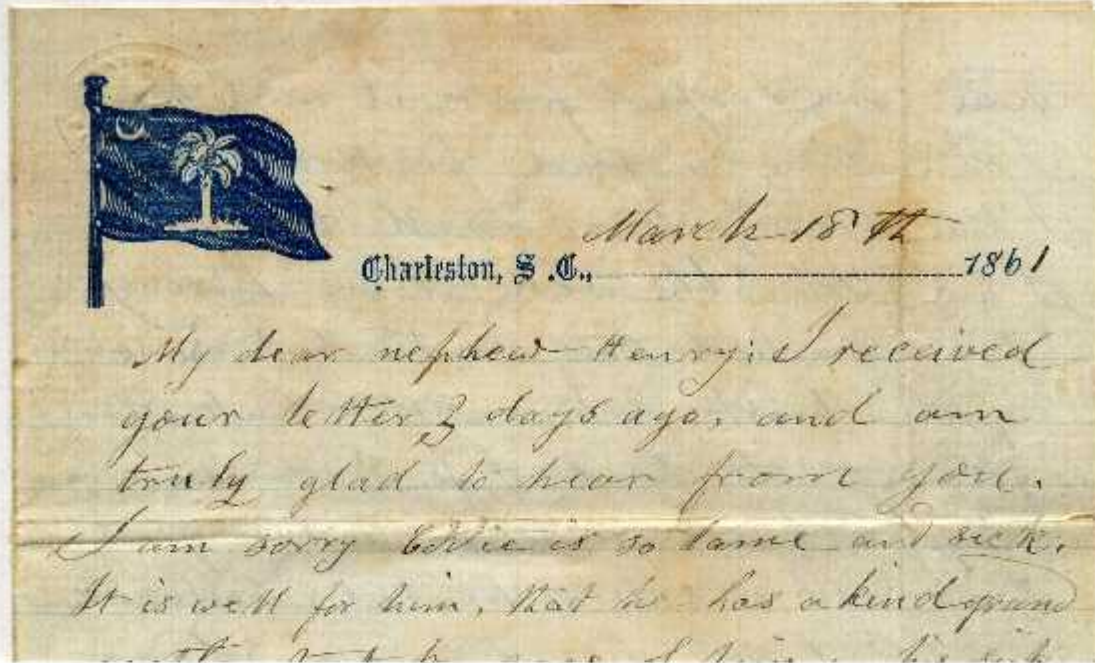 March 18th
Charleston, S.C., 1861
My dear nephew Henry; I received
your letter 3 days ago, and am
truly glad to hear from you.
I am sorry Eddie is so lame and sick.
It is well for him, that he has a kind grand